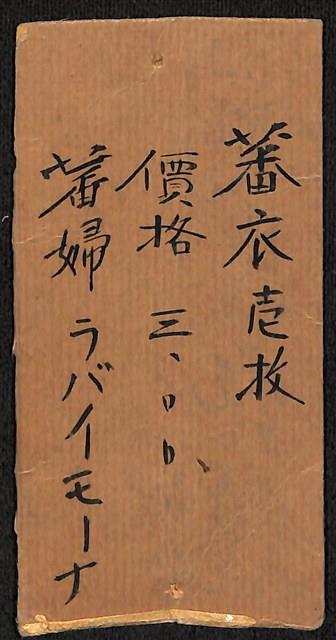 蕃衣壱枚
價格 三、〇〇
蕃婦 ラバイモーナ